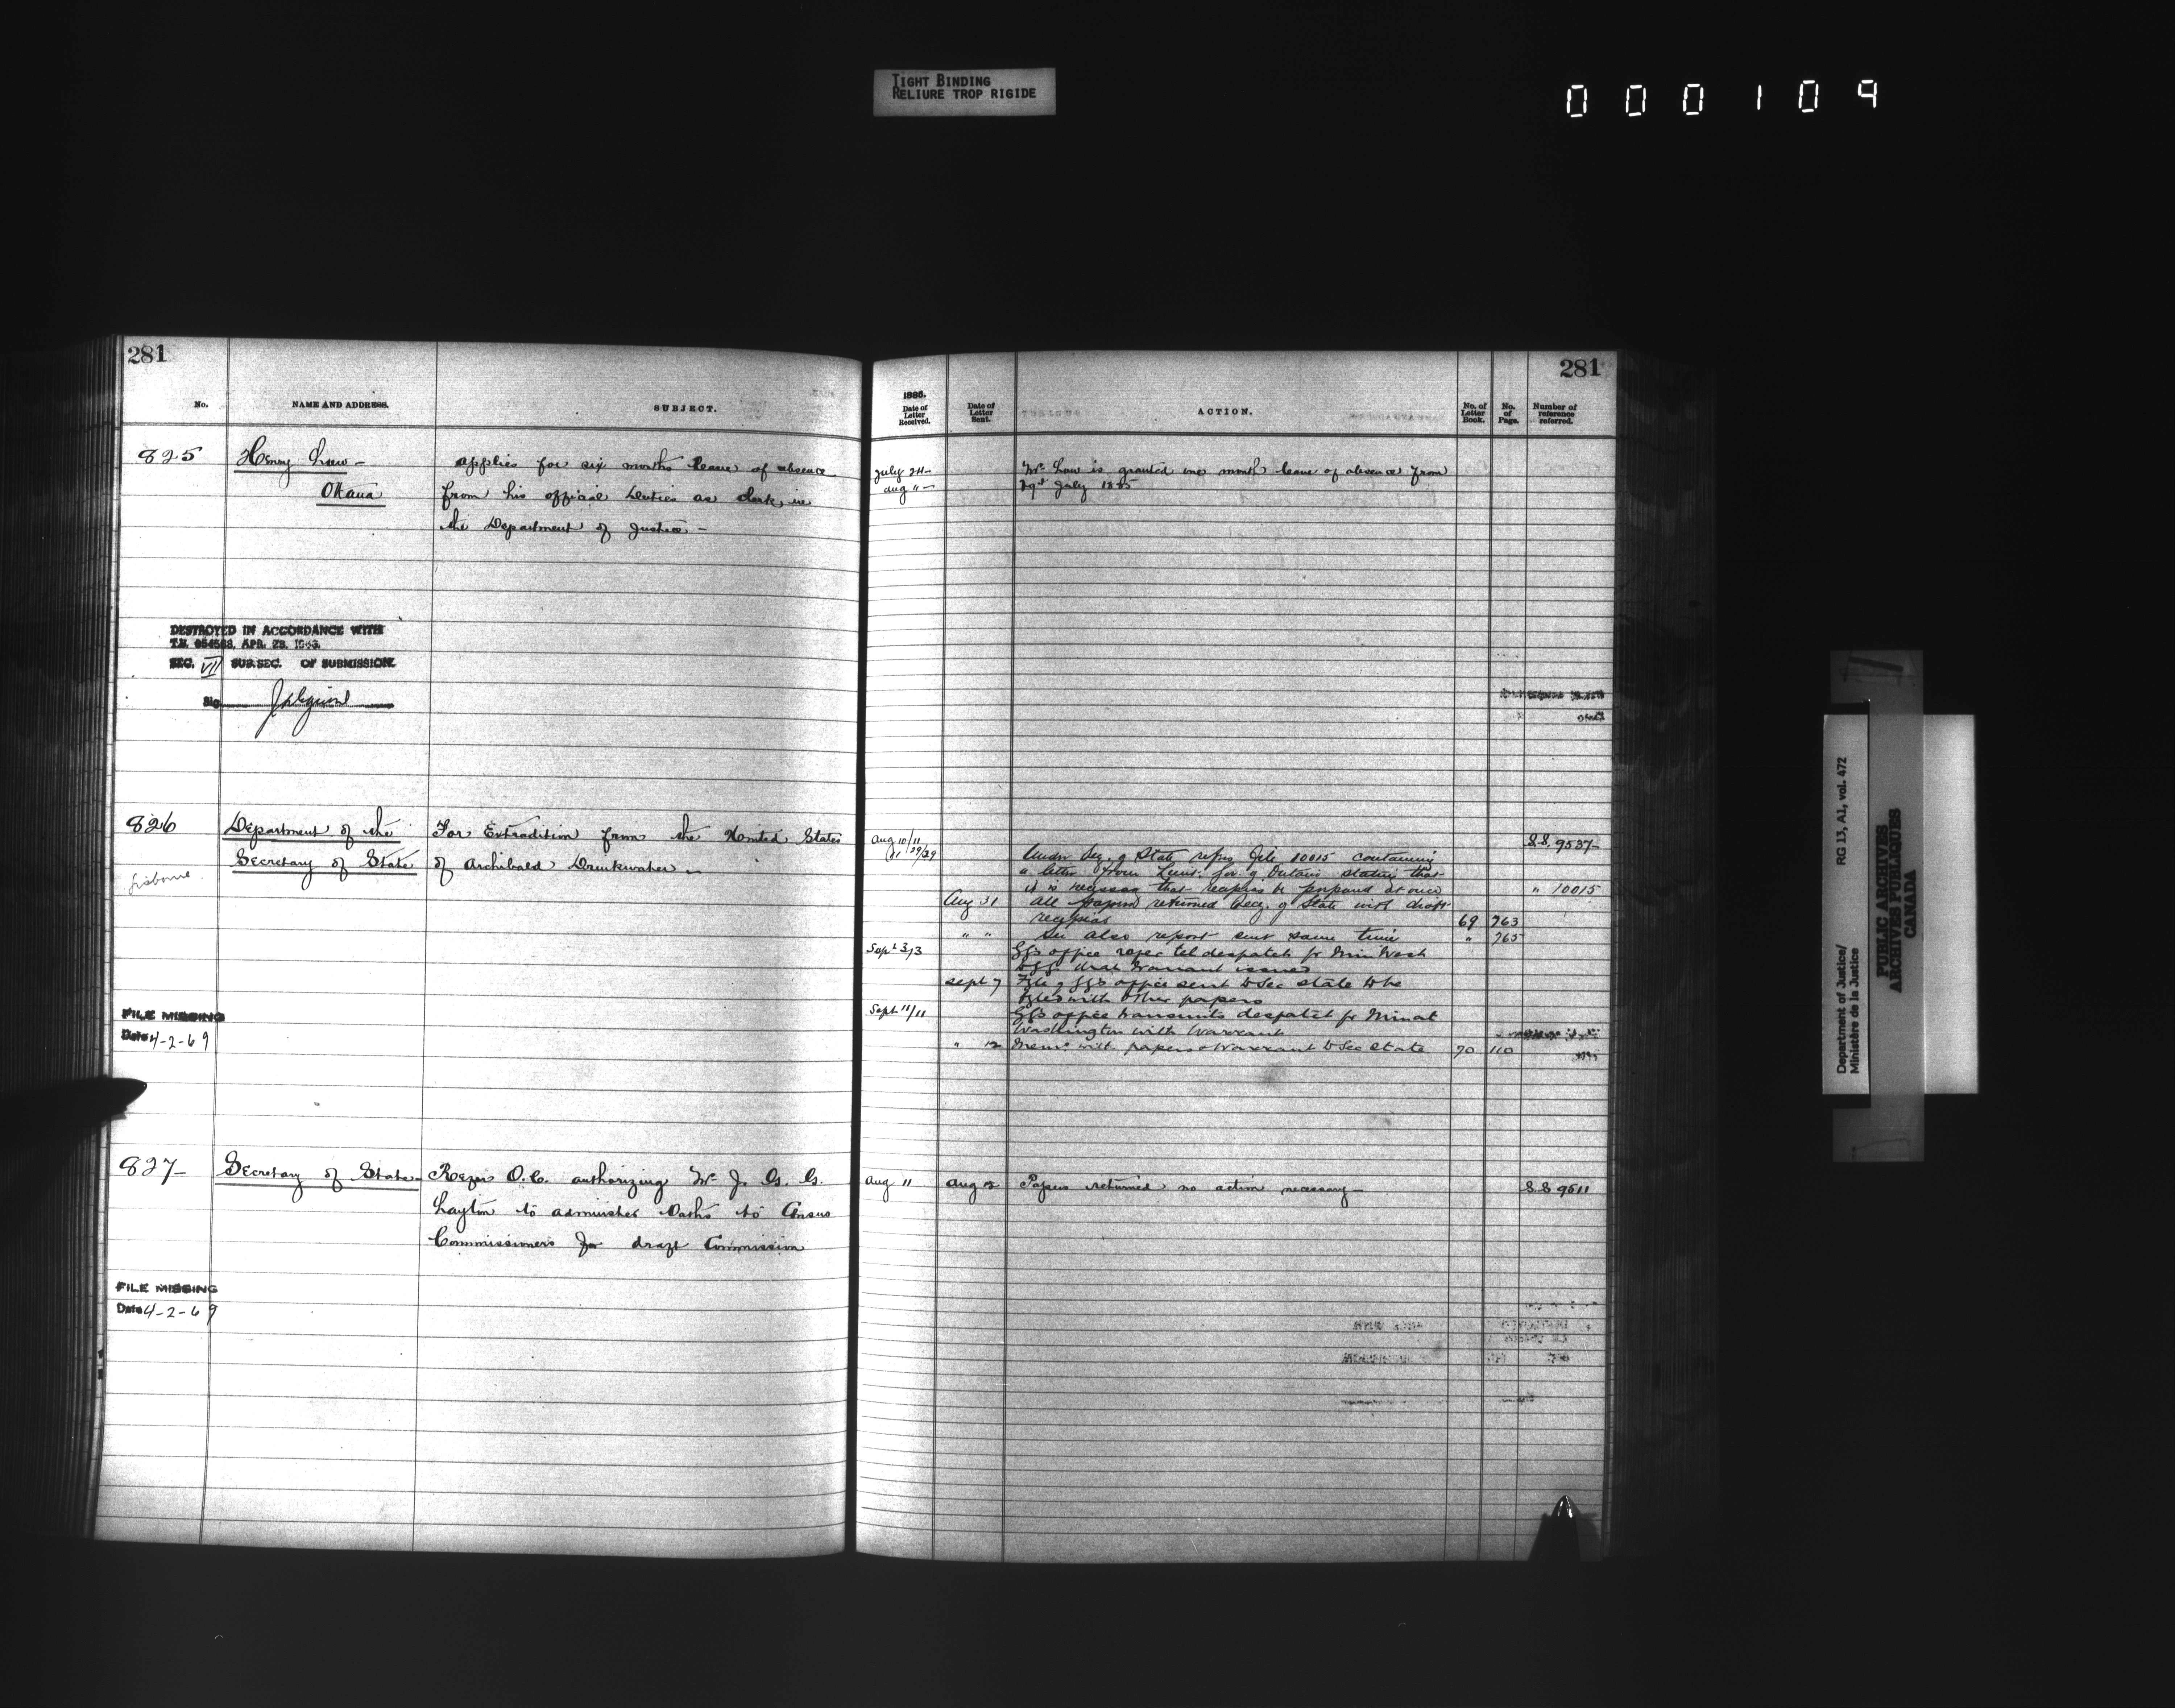 TIGHT BINDING
RELIURE TROP RIGIDE
000109
281
No. NAME AND ADDRESS. SUBJECT.
825 Henry Law - applies for six months leave of absence
Ottawa from his official duties as clerk in
the Department of Justice -
DESTROYED IN ACCORDANCE WITH
APR. 28,
SEC. VI SUB.SEC. OF SUBMISSION.
Sig
826 Department of the For Extradition from the United States
Secretary of State of Archibald Drinkwater -
FILE MISSING
Date 4-2-69
827 - Secretary of State - Refers O.C. authorizing Mr J. G. G.
Layton to administer Oaths to Census
Commissioners for draft Commission
FILE MISSING
Date 4-2-69
281
1885.
Date of Letter Received. Date of Letter Sent. ACTION. No. of Letter Book. No. of Page. Number of reference referred.
July 24 - Mr Law is granted one month leave of absence from
Aug 11 - July 1885
Aug 10/11 S.S. 9537 -
29/29 Under Sec. of State refers file 10015 containing
a letter from Lieut. Gov. of Ontario stating that
it is necessary that be prepared at once " 10015
Aug 31 All papers returned Secy. of State with draft
69 763
" " See also report sent same time " 765
Sept 3/3 GG's office refer tel despatch fr Min Wash
warrant issued
Sept 7 File of GG's office sent to Sec State to be
filed with other papers
Sept 11/11 GG's office transmits despatch fr Min at
Washington with Warrant
" 12 Memo with papers & Warrant to Sec State 70 110
Aug 11 Aug 12 Papers returned no action necessary - S.S 9511
Department of Justice/ RG 13, A1, vol. 472
Ministère de la Justice
PUBLIC ARCHIVES
ARCHIVES PUBLIQUES
CANADA